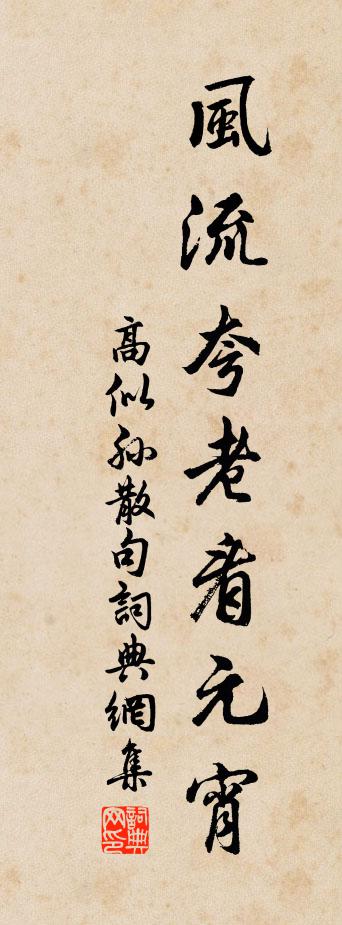 風流夸老看元宵
高似孙散句詞典網集
詞典网印